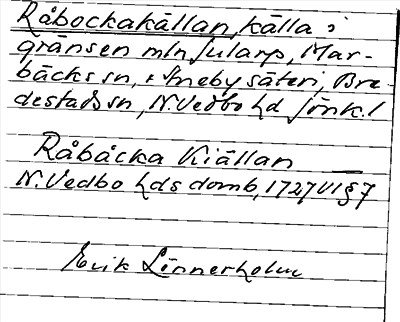 Råbockakällan, källa i
gränsen mln Jularp, Mar-
bäcks sn, o Sneby säteri, Bre-
destads sn, N. Vedbo hd Jönk. l
Råbäcka Kiällan
N. Vedbo hds domb, 1727 VI § 7
Erik Linnerholm